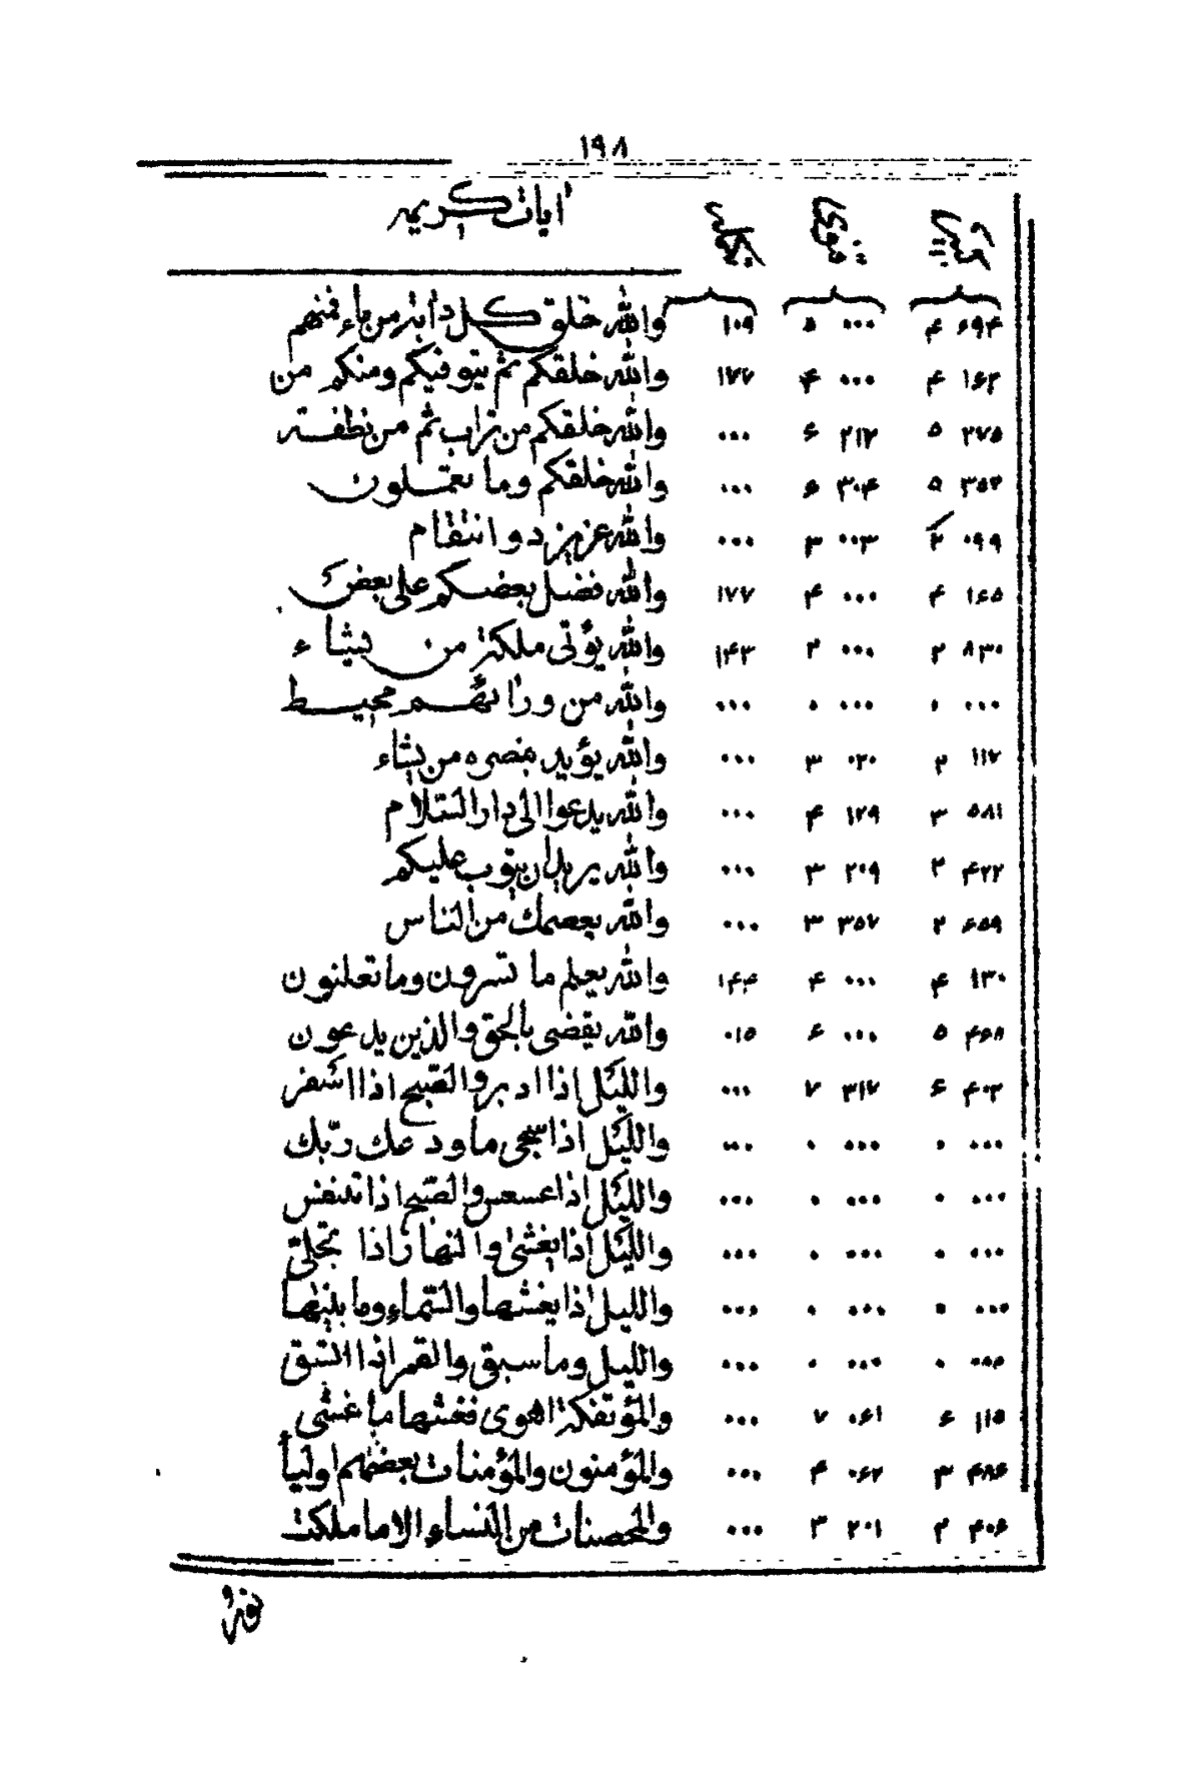 ۱۹۸
آيات كريمه
۶۹۴ ۴ ۰۰۰ ۵ ۱۰۹ والله خلق كل دابة من ماء فمنهم
۱۶۲ ۴ ۰۰۰ ۴ ۱۷۷ والله خلقكم ثم يتوفيكم ومنكم من
۲۷۵ ۵ ۲۱۲ ۶ ۰۰۰ والله خلقكم من تراب ثم من نطفة
۳۵۲ ۵ ۳۰۴ ۶ ۰۰۰ والله خلقكم وما تعملون
۰۹۹ ۲ ۰۰۳ ۳ ۰۰۰ والله عزيز ذو انتقام
۱۶۵ ۴ ۰۰۰ ۴ ۱۷۷ والله فضل بعضكم على بعض
۸۳۰ ۲ ۰۰۰ ۲ ۱۴۳ والله يؤتى ملكه من يشاء
۰۰۰ ۰ ۰۰۰ ۰ ۰۰۰ والله من ورائهم محيط
۱۱۷ ۲ ۰۲۰ ۳ ۰۰۰ والله يؤيد بنصره من يشاء
۵۸۱ ۳ ۱۲۹ ۴ ۰۰۰ والله يدعوا الى دار السلام
۴۲۲ ۲ ۲۰۹ ۳ ۰۰۰ والله يريد ان يتوب عليكم
۶۵۹ ۲ ۳۵۷ ۳ ۰۰۰ والله يعصمك من الناس
۱۳۰ ۴ ۰۰۰ ۴ ۱۴۴ والله يعلم ما تسرون وما تعلنون
۴۶۸ ۵ ۰۰۰ ۶ ۰۱۵ والله يقضى بالحق والذين يدعون
۴۰۲ ۶ ۳۱۷ ۷ ۰۰۰ والليل اذا ادبر والصبح اذا اسفر
۰۰۰ ۰ ۰۰۰ ۰ ۰۰۰ والليل اذا سجى ما ودعك ربك
۰۰۰ ۰ ۰۰۰ ۰ ۰۰۰ والليل اذا عسعس والصبح اذا تنفس
۰۰۰ ۰ ۰۰۰ ۰ ۰۰۰ والليل اذا يغشى والنهار اذا تجلى
۰۰۰ ۰ ۰۰۰ ۰ ۰۰۰ والليل اذا يغشها والسماء وما بنيها
۰۰۰ ۰ ۰۰۰ ۰ ۰۰۰ والليل وما سبق والقمر اذا اتسق
۱۱۵ ۶ ۰۶۱ ۷ ۰۰۰ والمؤتفكة اهوى فغشها ما غشى
۴۸۶ ۳ ۰۶۲ ۴ ۰۰۰ والمؤمنون والمؤمنات بعضهم اوليأ
۴۰۶ ۲ ۲۰۱ ۳ ۰۰۰ والمحصنات من النساء الا ما ملكت